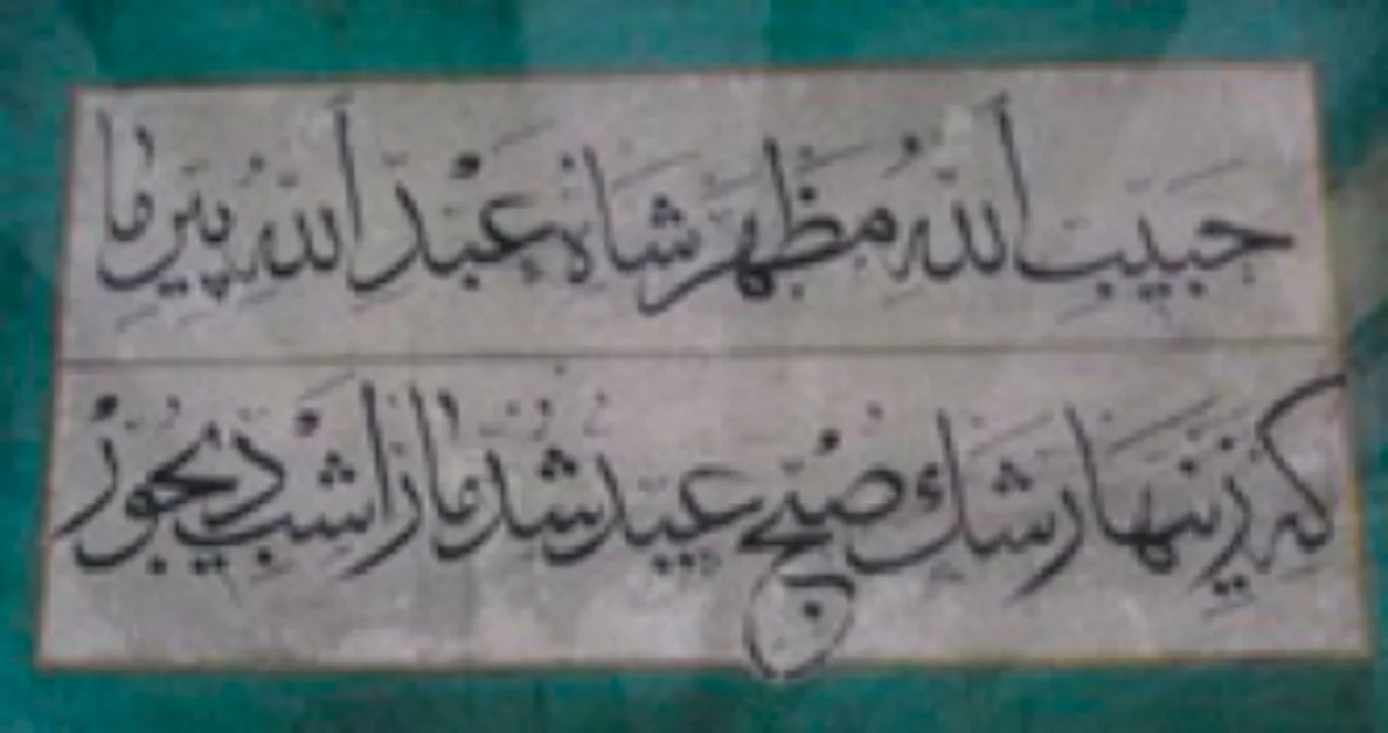 حبيب الله مظهر شاه عبد الله پير ما
كه زينها رشك صبح عيد شد ما را شب ديجور